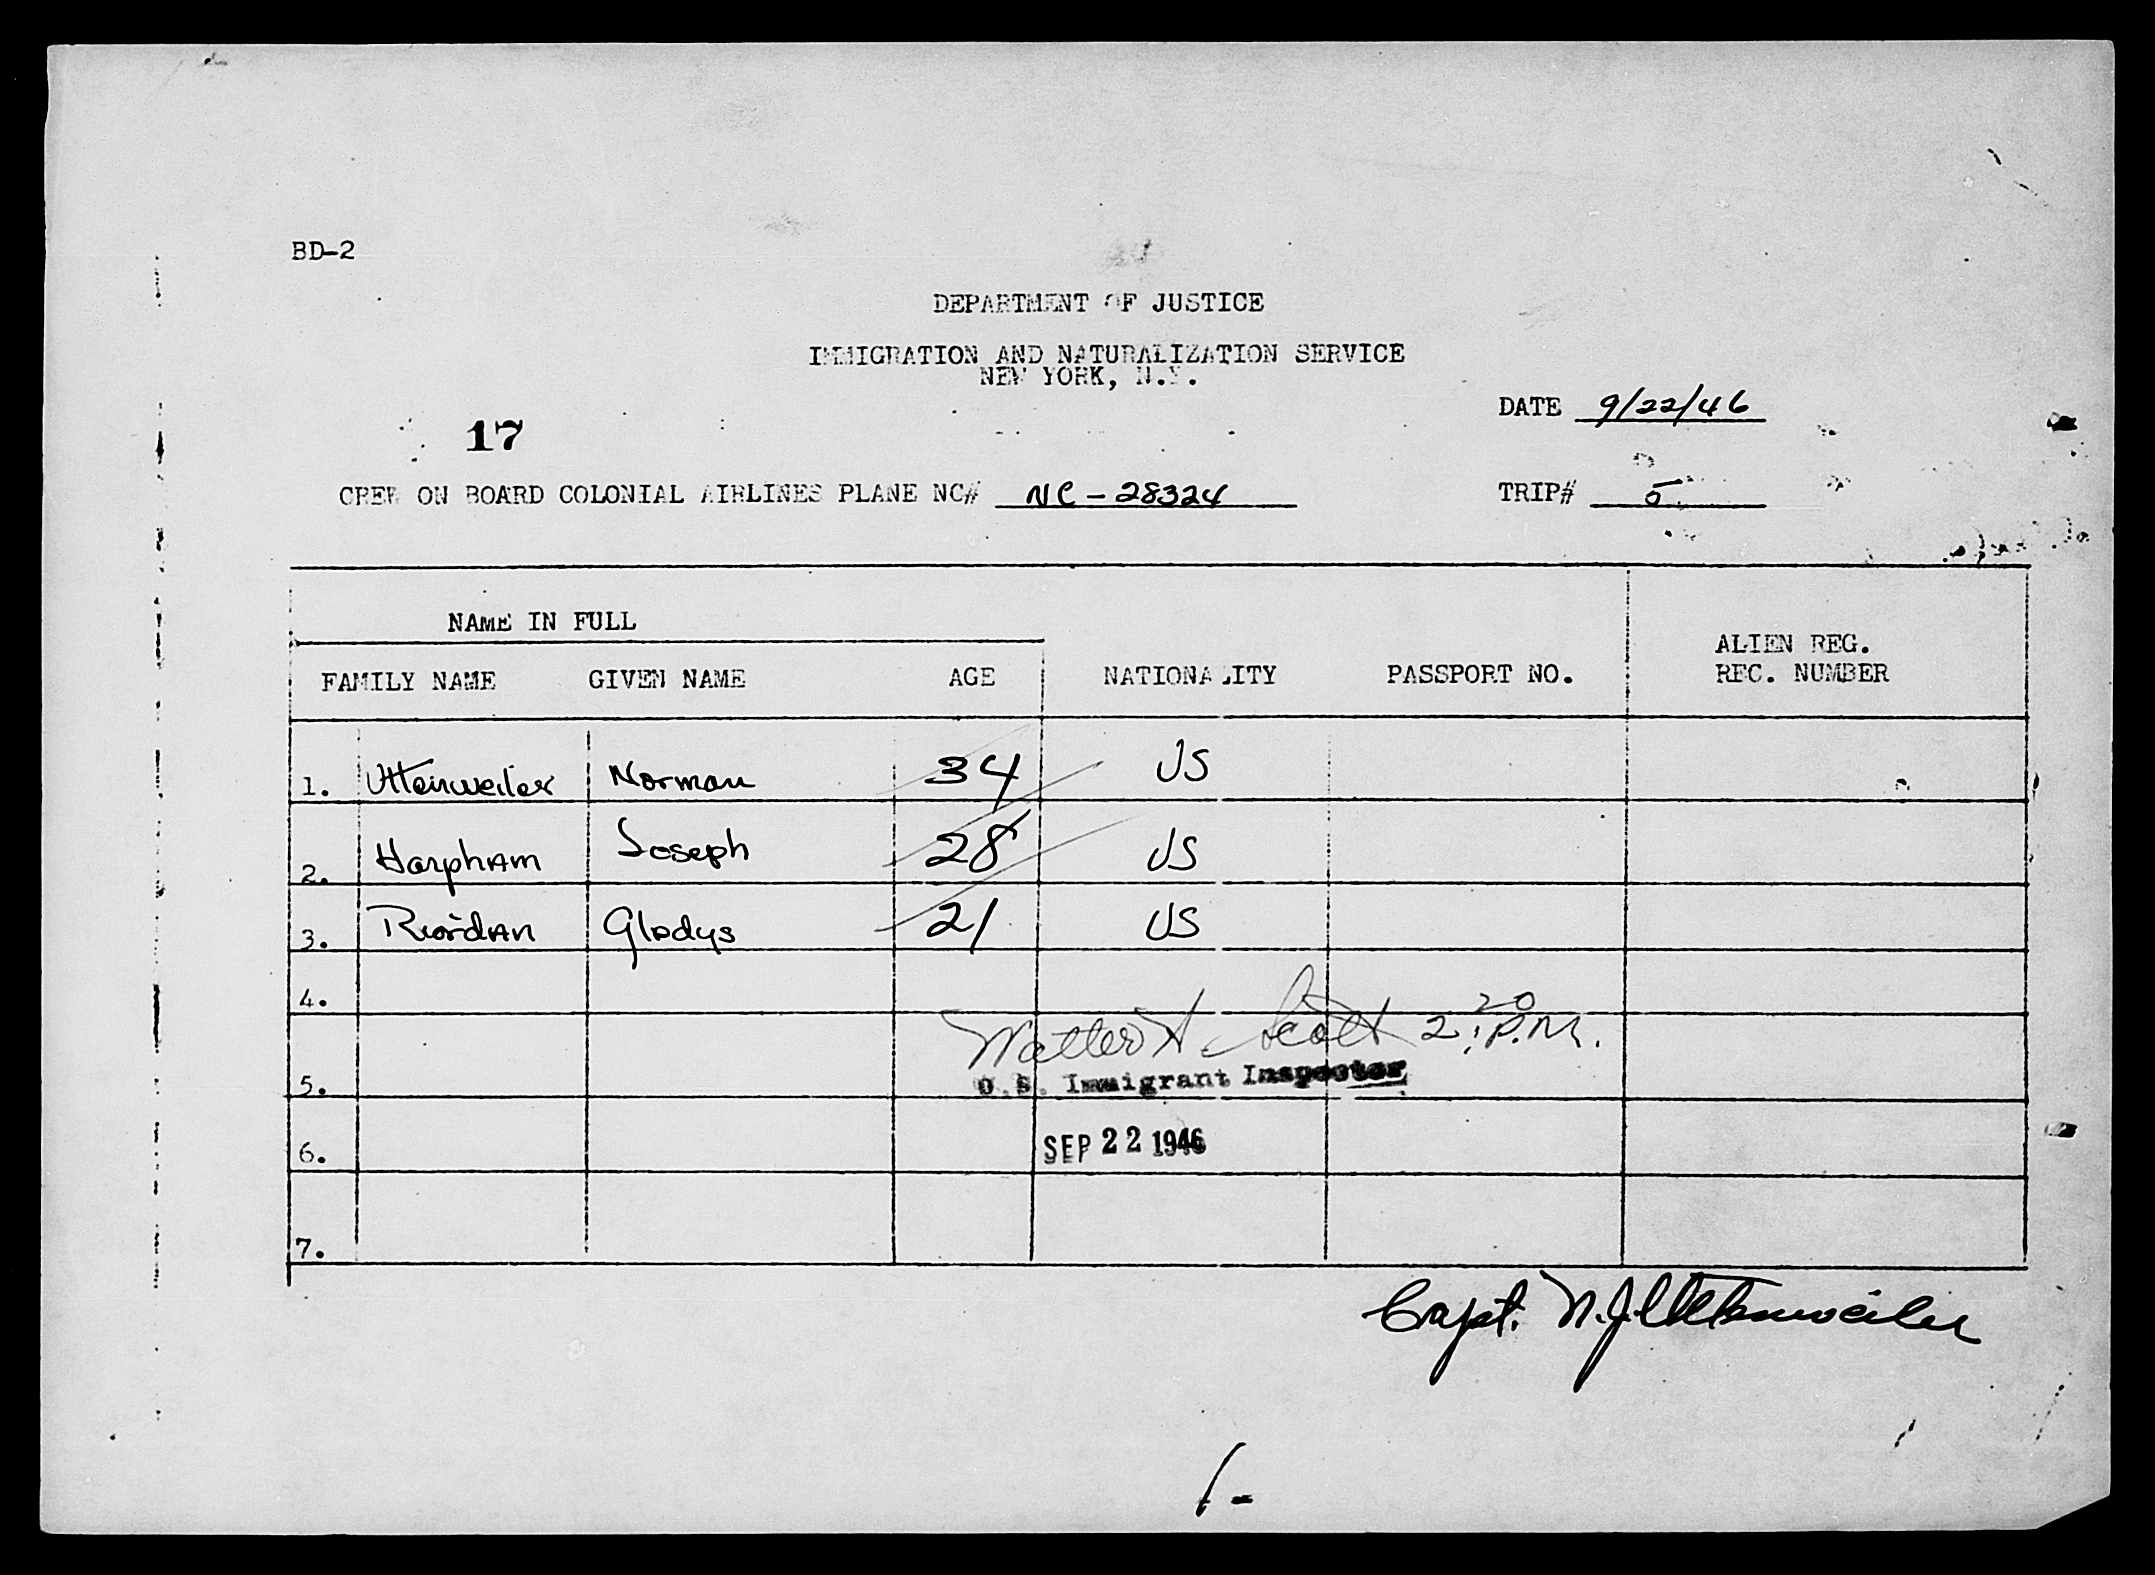 BD-2
DEPARTMENT OF JUSTICE
IMMIGRATION AND NATURALIZATION SERVICE
NEW YORK, N.Y.
DATE 9/22/46
17
CREW ON BOARD COLONIAL AIRLINES PLANE NC# NC-28324 TRIP# 5
NAME IN FULL
FAMILY NAME GIVEN NAME AGE NATIONALITY PASSPORT NO. ALIEN REG. REC. NUMBER
1. Uttenweiler Norman 34 US
2. Harpham Joseph 28 US
3. Riordan Gladys 21 US
4.
Walter H. Scott 2:20 P.M.
5. U.S. Immigrant Inspector
6. SEP 22 1946
7.
Capt. N.J. Uttenweiler
1-